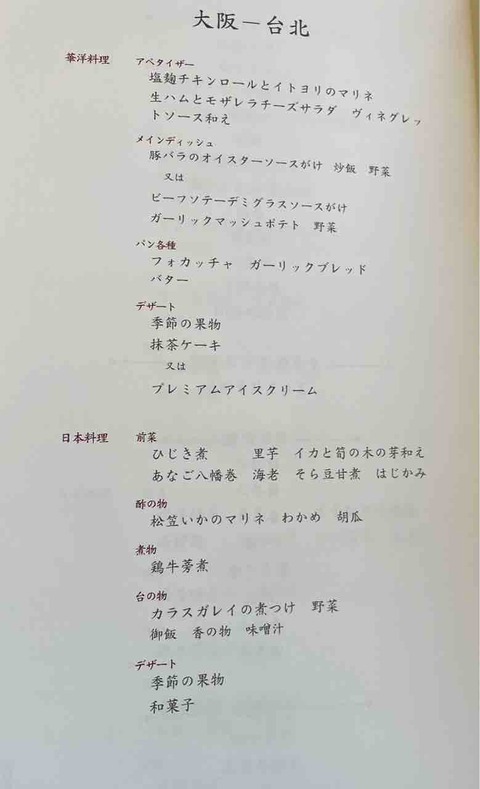 大阪－台北
華洋料理　アペタイザー
塩麹チキンロールとイトヨリのマリネ
生ハムとモザレラチーズサラダ　ヴィネグレッ
トソース和え
メインディッシュ
豚バラのオイスターソースがけ　炒飯　野菜
又は
ビーフソテーデミグラスソースがけ
ガーリックマッシュポテト　野菜
パン各種
フォカッチャ　ガーリックブレッド
バター
デザート
季節の果物
抹茶ケーキ
又は
プレミアムアイスクリーム
日本料理　前菜
ひじき煮　里芋　イカと筍の木の芽和え
あなご八幡巻　海老　そら豆甘煮　はじかみ
酢の物
松笠いかのマリネ　わかめ　胡瓜
煮物
鶏牛蒡煮
台の物
カラスガレイの煮つけ　野菜
御飯　香の物　味噌汁
デザート
季節の果物
和菓子